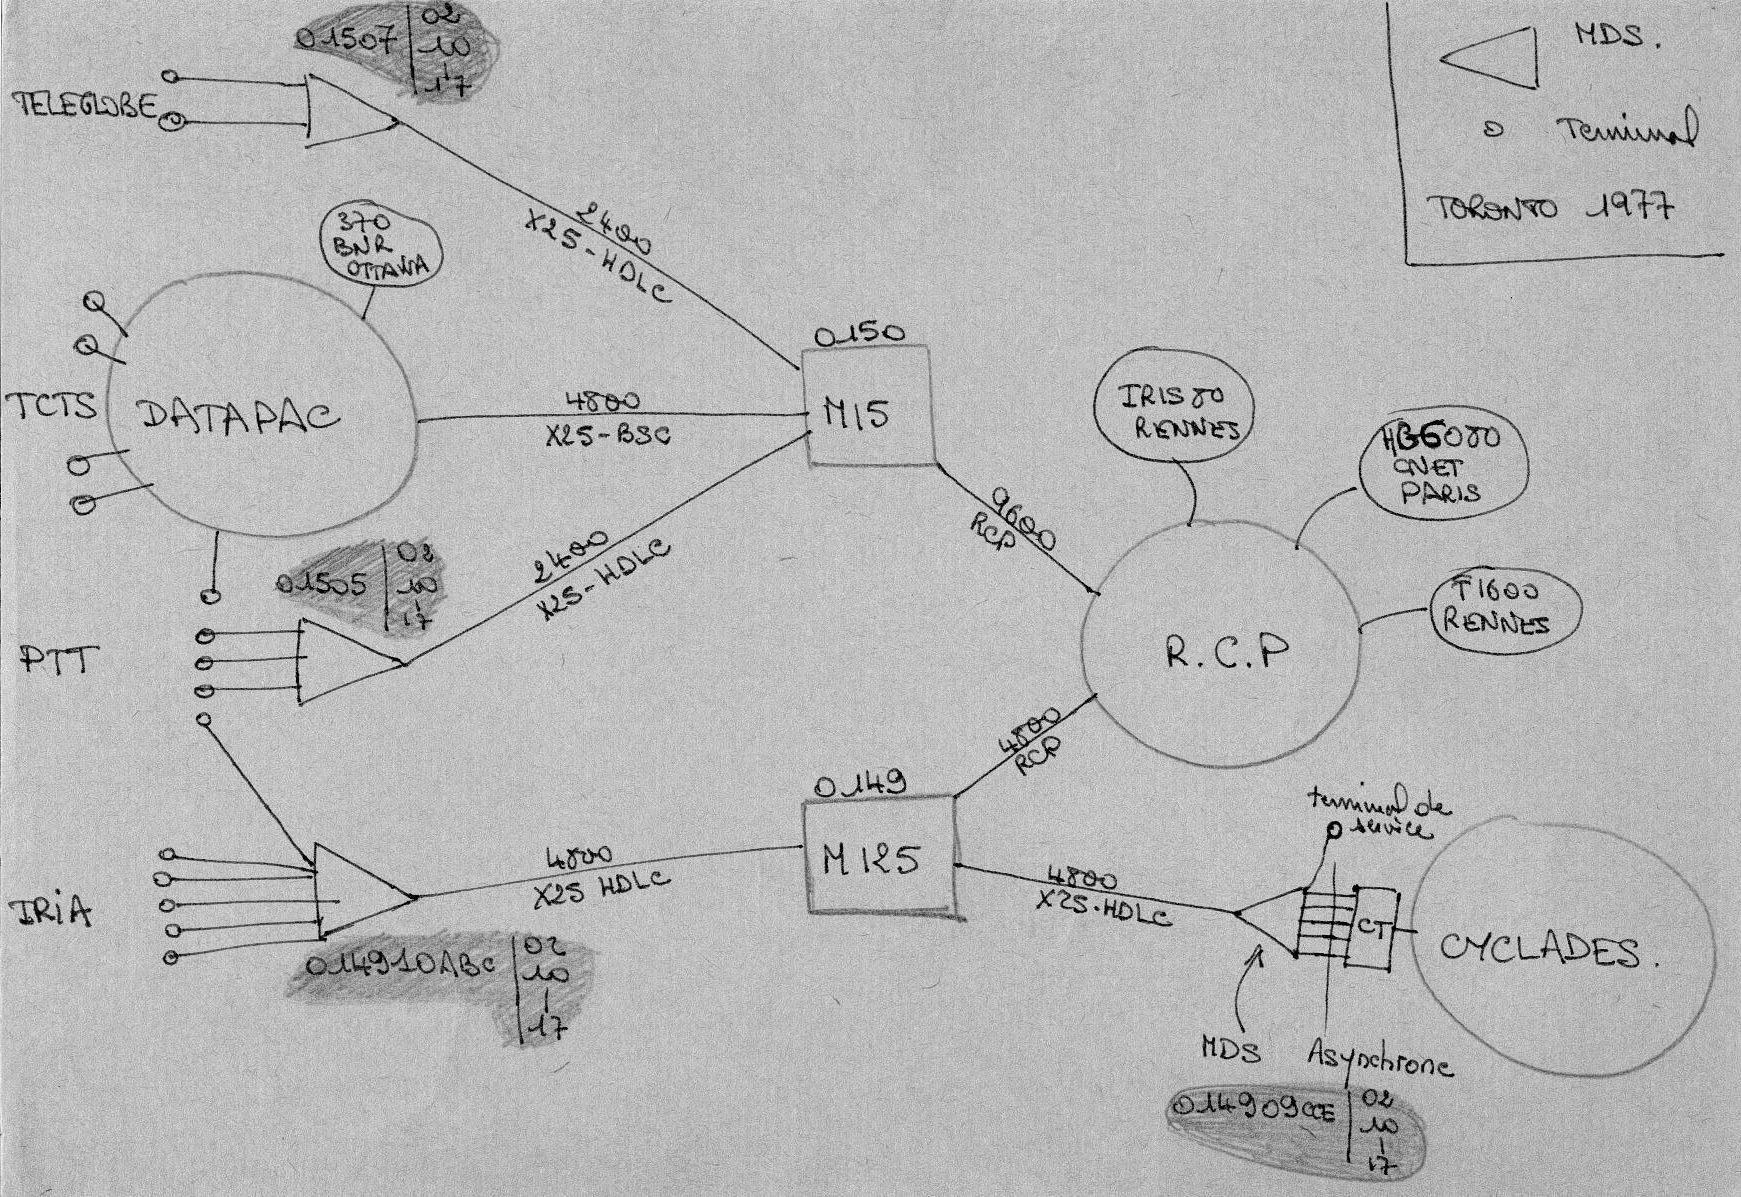 01507
02
10
17
MDS.
Terminal
TORONTO 1977
TELEGLOBE
2400
X25-HDLC
370
BNR
OTTAWA
TCTS
DATAPAC
4800
X25-BSC
0150
M15
IRIS 80
RENNES
HB6080
CNET
PARIS
9600
RCP
T1600
RENNES
R.C.P
01505
02
10
17
2400
X25-HDLC
PTT
4800
RCP
0149
M125
terminal de
service
IRiA
4800
X25 HDLC
4800
X25-HDLC
CT
CYCLADES.
014910ABC
02
10
17
MDS
Asynchrone
014909CCE
02
10
17